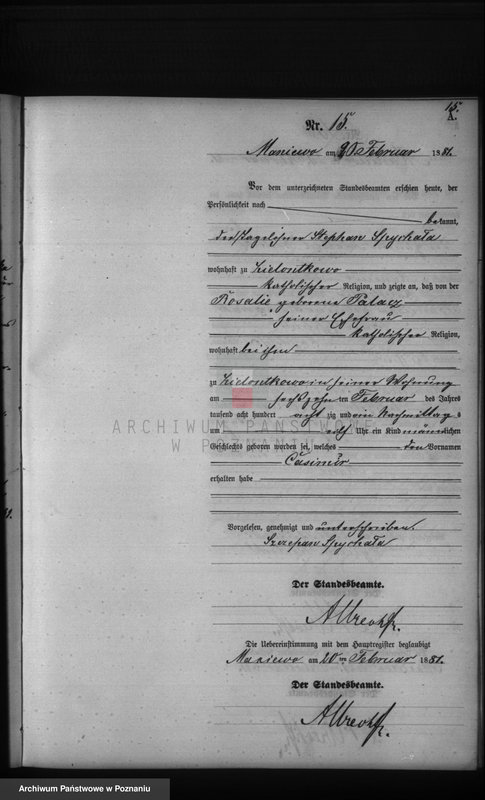 15.
A.
Nr. 15.
Maniewo am 20 Februar 1881.
Vor dem unterzeichneten Standesbeamten erschien heute, der
Persönlichkeit nach
bekannt,
der Tagelöhner Stephan Spychała
wohnhaft zu Zielontkowo
katholischer Religion, und zeigte an, daß von der
Rosalie geborene Palacz
seiner Ehefrau
katholischer Religion,
wohnhaft bei ihm
zu Zielontkowo in seiner Wohnung
am sechszehn ten Februar des Jahres
tausend acht hundert acht zig und ein Nachmittag s
um Uhr ein Kind männlichen
Geschlechts geboren worden sei, welches den Vornamen
Casimir
erhalten habe
Vorgelesen, genehmigt und unterschrieben.
Szczepan Spychała
Der Standesbeamte.
Die Uebereinstimmung mit dem Hauptregister beglaubigt
Maniewo am 20 ten Februar 1881.
Der Standesbeamte.
ARCHIWUM PAŃSTWOWE
W POZNANIU
Archiwum Państwowe w Poznaniu